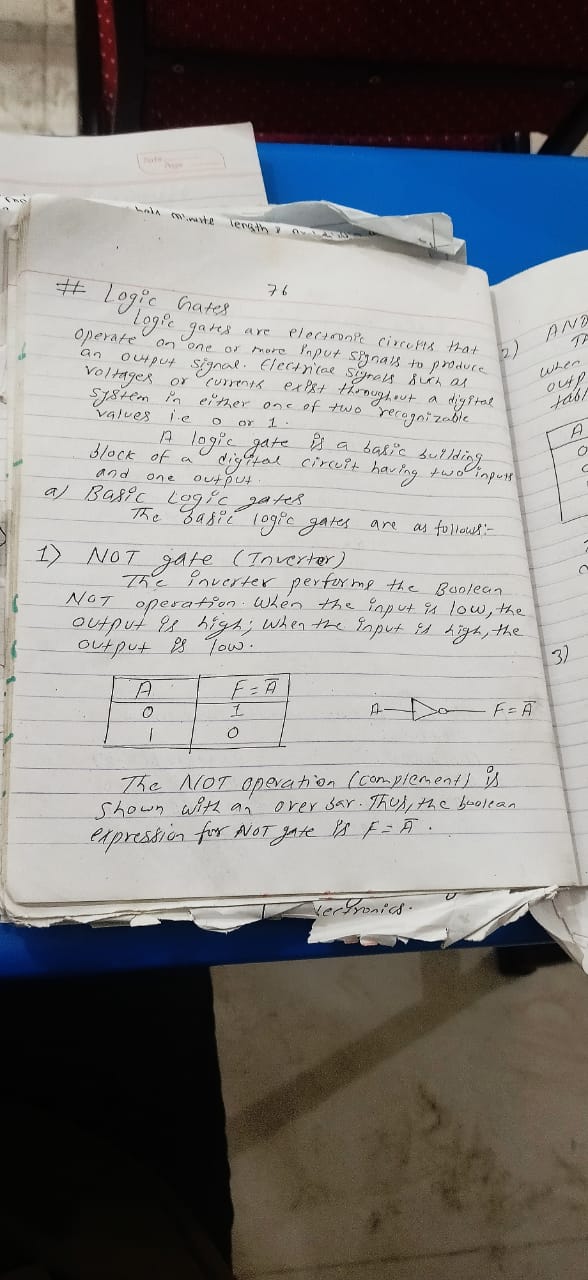 Date
Page
minute length &
76
# Logic Gates
Logic gates are electronic circuits that
operate on one or more input signals to produce
an output signal. Electrical signals such as
voltages or currents exist throughout a digital
system in either one of two recognizable
values i.e 0 or 1.
A logic gate is a basic building
block of a digital circuit having two inputs
and one output.
a) Basic Logic gates
The basic logic gates are as follows:-
1) NOT gate (Inverter)
The inverter performs the Boolean
NOT operation. When the input is low, the
output is high; when the input is high, the
output is low.
A F = A̅
0 1
1 0
A F = A̅
The NOT operation (complement) is
shown with an over bar. Thus, the boolean
expression for NOT gate is F = A̅ .
2) AND
when
outp
tabl
A
0
3)